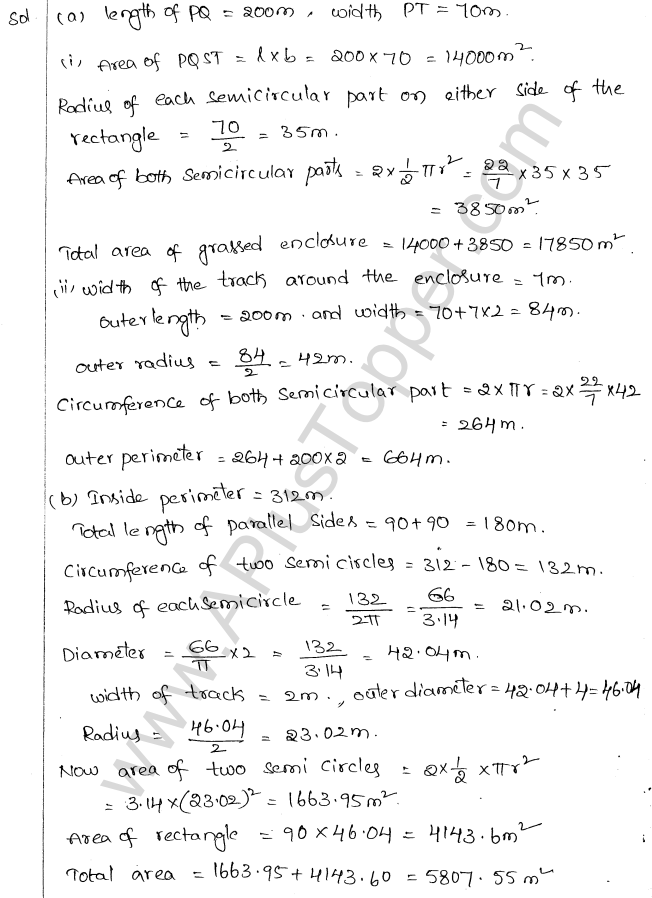 Sol (a) length of PQ = 200m, width PT = 70m.
(i) Area of PQST = l x b = 200 x 70 = 14000 m².
Radius of each semicircular part on either side of the
rectangle = 70/2 = 35m.
Area of both semicircular parts = 2 x 1/2 πr² = 22/7 x 35 x 35
= 3850m².
Total area of grassed enclosure = 14000 + 3850 = 17850 m².
(ii) width of the track around the enclosure = 7m.
Outer length = 200m. and width = 70+7x2 = 84m.
outer radius = 84/2 = 42m.
Circumference of both semicircular part = 2 x πr = 2x 22/7 x42
= 264m.
outer perimeter = 264 + 200x2 = 664m.
(b) Inside perimeter = 312m.
Total length of parallel sides = 90+90 = 180m.
Circumference of two semi circles = 312 - 180 = 132m.
Radius of each semicircle = 132/2π = 66/3.14 = 21.02m.
Diameter = 66/π x2 = 132/3.14 = 42.04m.
width of track = 2m., outer diameter = 42.04+4 = 46.04
Radius = 46.04/2 = 23.02m.
Now area of two semi circles = 2x 1/2 xπr²
= 3.14x(23.02)² = 1663.95m².
Area of rectangle = 90 x 46.04 = 4143.6m²
Total area = 1663.95 + 4143.60 = 5807.55 m²
www.APlusTopper.com